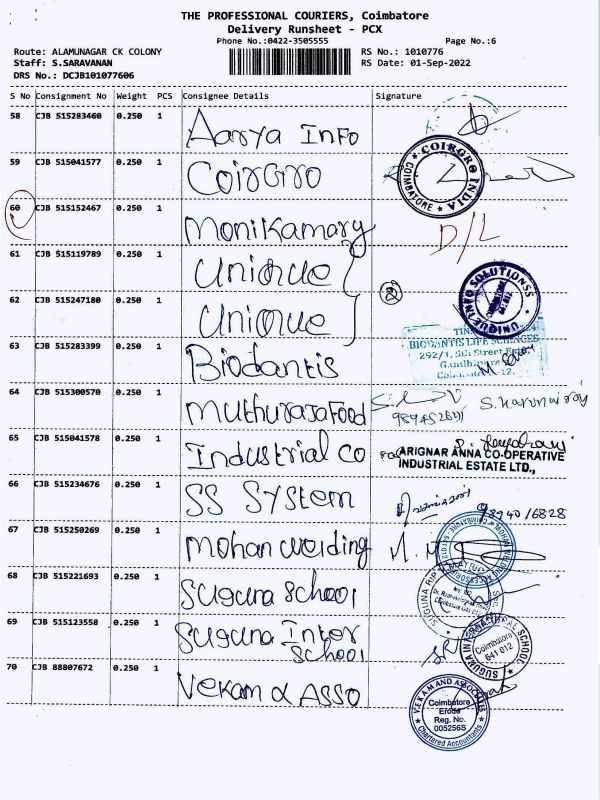 THE PROFESSIONAL COURIERS, Coimbatore
Delivery Runsheet - PCX
Phone No.:0422-3505555 Page No.:6
Route: ALAMUNAGAR CK COLONY RS No.: 1010776
Staff: S.SARAVANAN RS Date: 01-Sep-2022
DRS No.: DCJB101077606
S No Consignment No Weight PCS Consignee Details Signature
58 CJB 515283460 0.250 1 Aarya Info
59 CJB 515041577 0.250 1 Coirgro
COIRGRO INDIA COIMBATORE
60 CJB 515152467 0.250 1 Monikamary D/L
61 CJB 515119789 0.250 1 Unique
62 CJB 515247180 0.250 1 Unique
UNIQUE INFO SOLUTIONSS
63 CJB 515283399 0.250 1 Biodantis
BIODANTIS LIFE SCIENCES
292/1, 5th Street
64 CJB 515300570 0.250 1 Muthuraja Food
65 CJB 515041578 0.250 1 Industrial Co
ARIGNAR ANNA CO-OPERATIVE
INDUSTRIAL ESTATE LTD.,
66 CJB 515234676 0.250 1 SS System 98940/6828
67 CJB 515250269 0.250 1 Mohan Welding
68 CJB 515221693 0.250 1 Suguna School
69 CJB 515123558 0.250 1 Suguna Inter
School
SUGUNA INTERNATIONAL SCHOOL
Coimbatore
641 012
70 CJB 88807672 0.250 1 Vekam & Asso
VEKAM AND ASSOCIATES
Coimbatore
Erode
Reg. No.
005256S
Chartered Accountants